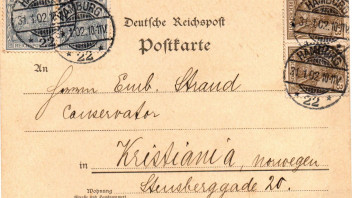 HAMBURG
31.1.02.10-11V.
* 22 *
HAMBURG
31.1.02.10-11V.
* 22 *
Deutsche Reichspost
Postkarte
HAMBURG
31.1.02.10-11V.
* 22 *
An
Herrn Emb. Strand
Conservator
in Kristiania, Norwegen
Wohnung
Stensberggade 20.